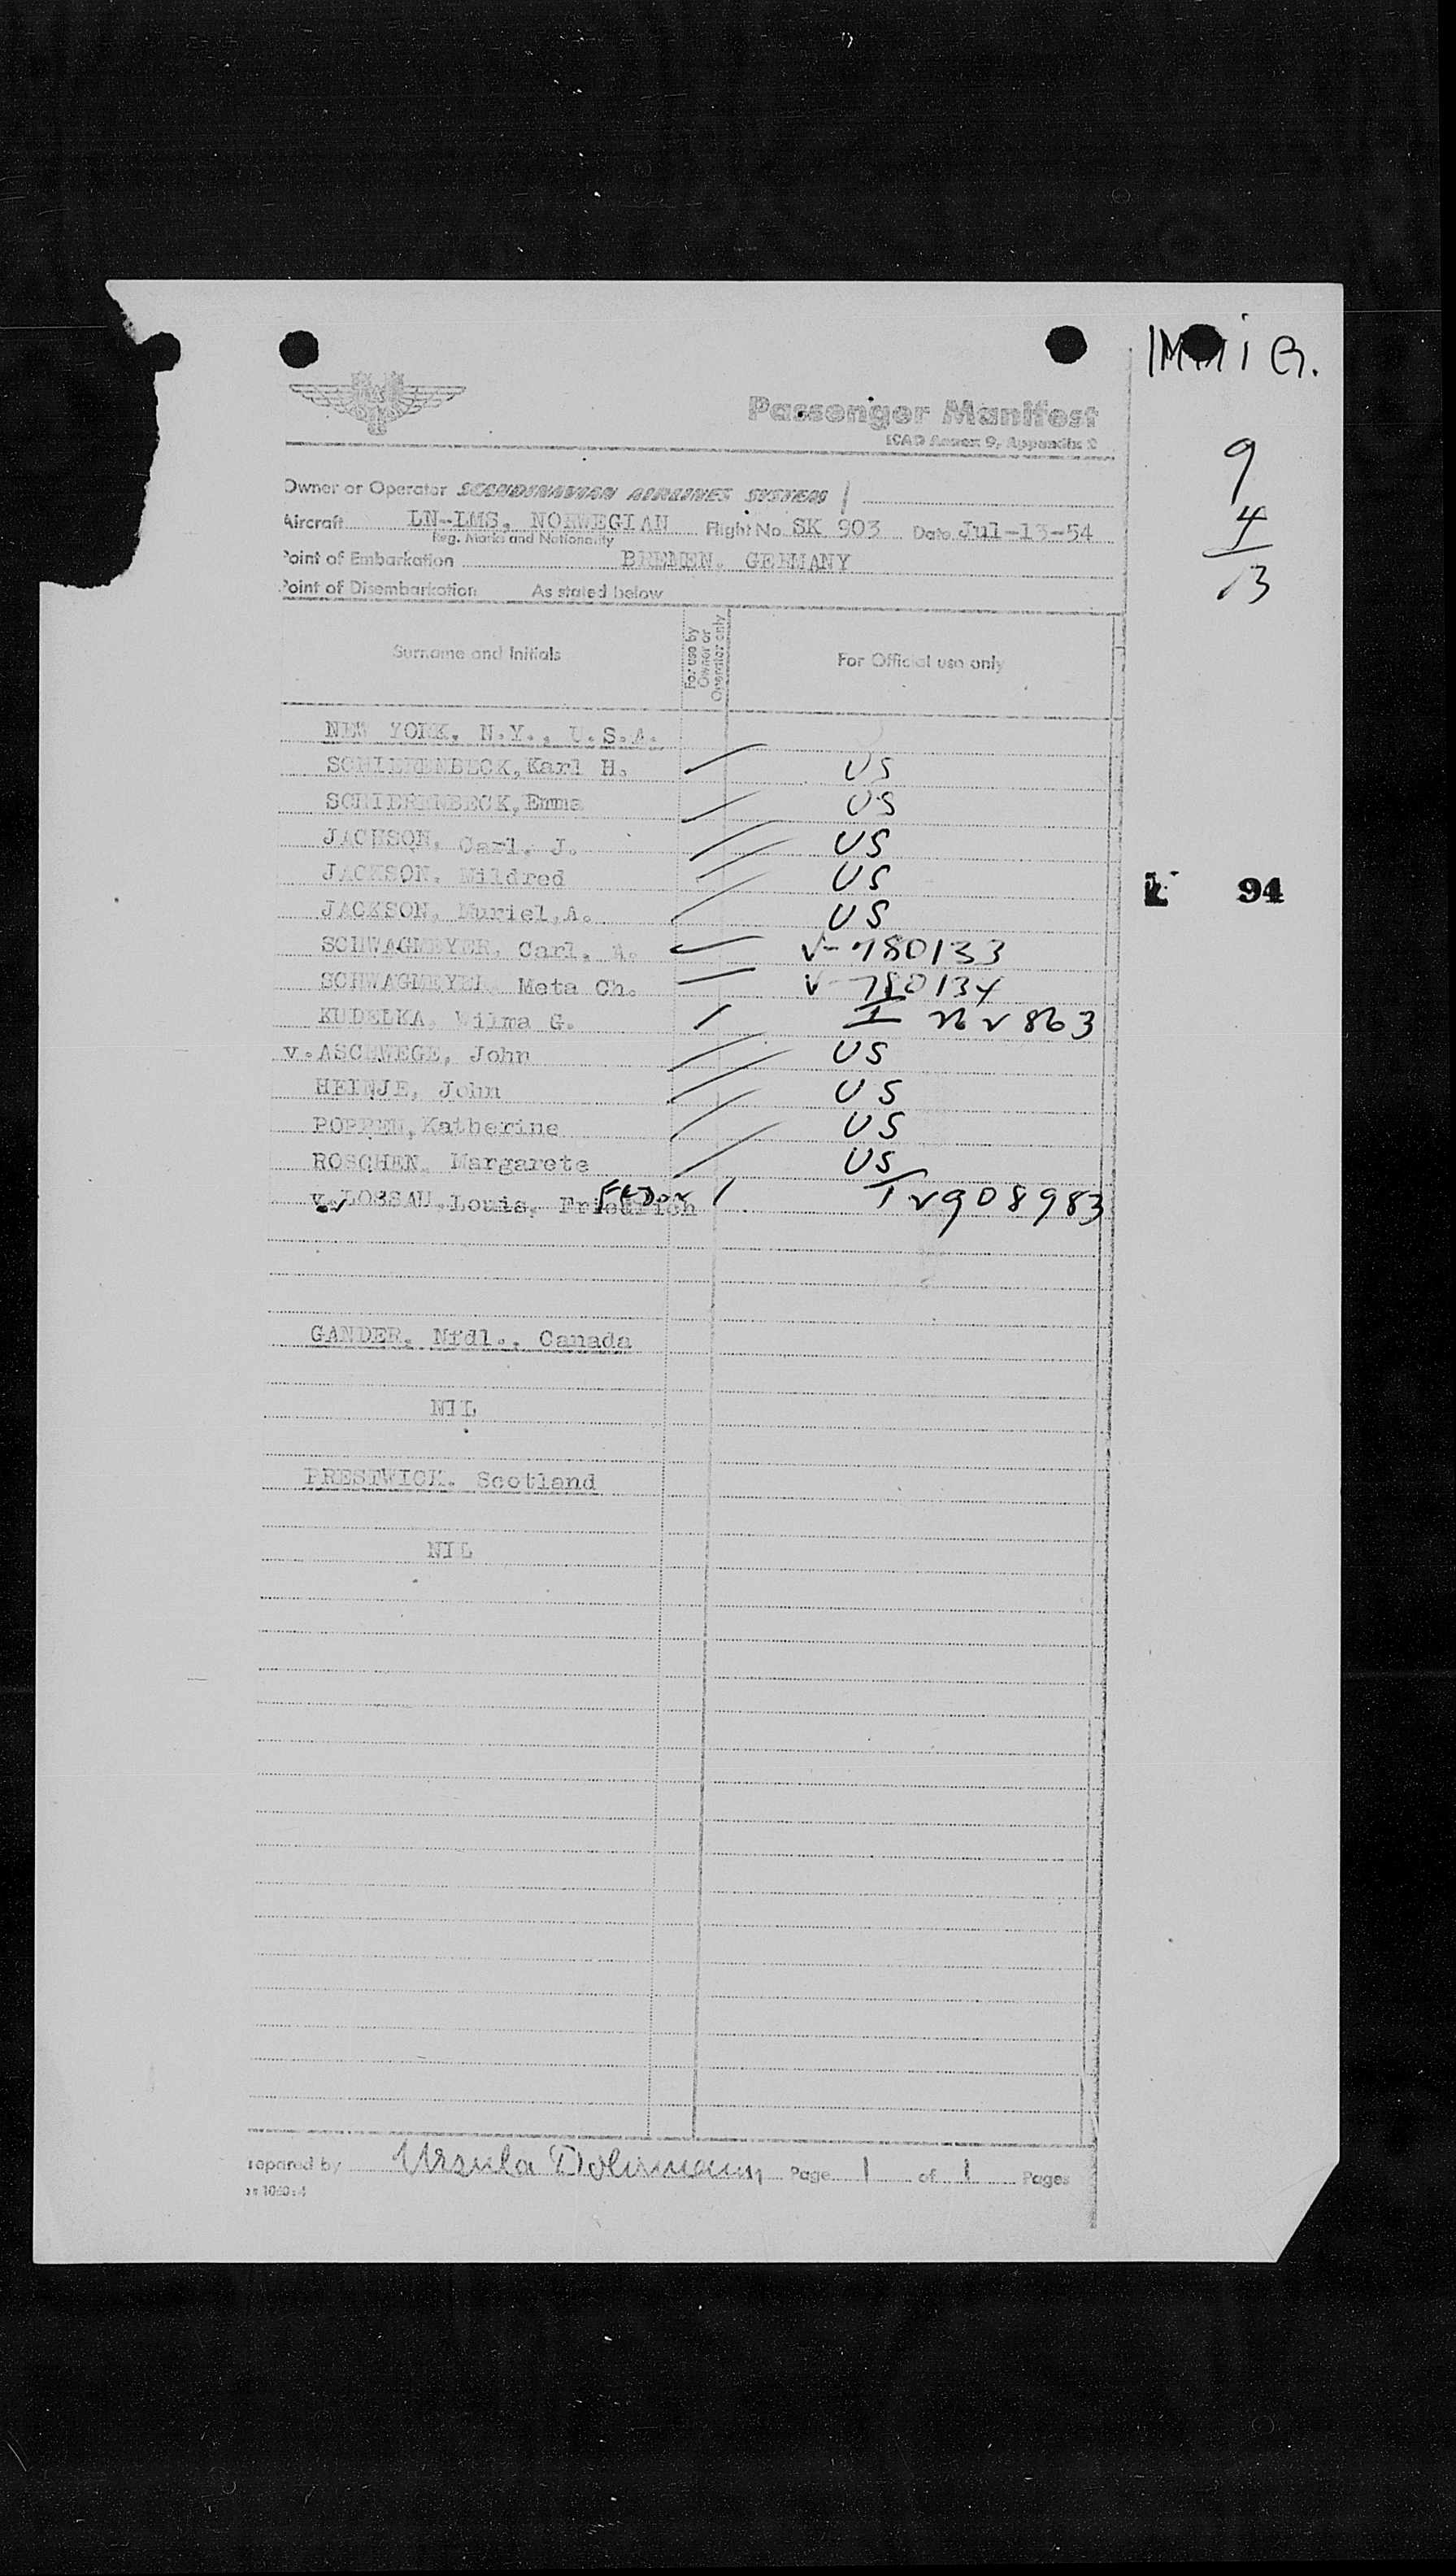 IMMIG.
Passenger Manifest
ICAO Annex 9, Appendix 2
9
4
13
Owner or Operator SCANDINAVIAN AIRLINES SYSTEM
Aircraft LN-LMS, NORWEGIAN Flight No. SK 903 Date Jul-13-54
Reg. Marks and Nationality
Point of Embarkation BREMEN, GERMANY
Point of Disembarkation As stated below
Surname and Initials For use by Owner or Operator only For Official use only
NEW YORK, N.Y., U.S.A.
SCHIERENBECK, Karl H. US
SCHIERENBECK, Emma US
JACKSON, Carl, J. US
JACKSON, Mildred US
94
JACKSON, Muriel, A. US
SCHWAGMEYER, Carl, A. V-780133
SCHWAGMEYER, Meta Ch. V-780134
KUDELKA, Wilma G. I
v.ASCHWEGE, John US
HEINJE, John US
POPPEN, Katherine US
ROSCHEN, Margarete US
v.LOSSAU, Louis, Friedrich I
GANDER, Nfdl., Canada
NIL
PRESTWICK, Scotland
NIL
repared by Ursula Page 1 of 1 Pages